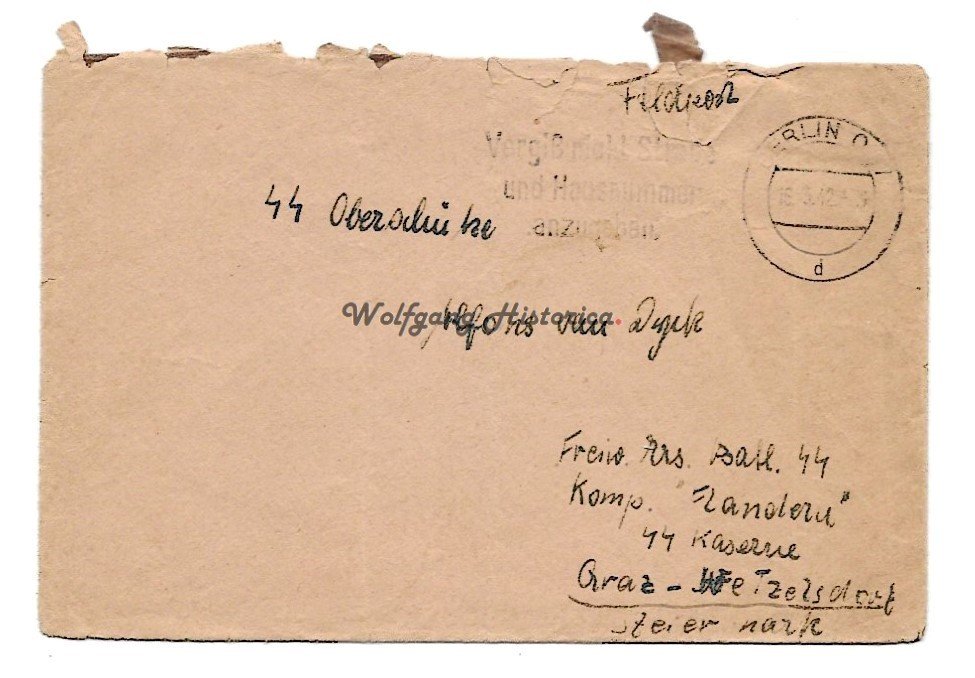 Feldpost
Vergiß nicht Straße
und Hausnummer
anzugeben
ERLIN O
d
44 Oberschütze
Wolfgang Historica.
Alfons van Dyck
Freiw. Ers. Batl. 44
Komp. "Flandern"
44 Kaserne
Graz - Wetzelsdorf
Steiermark